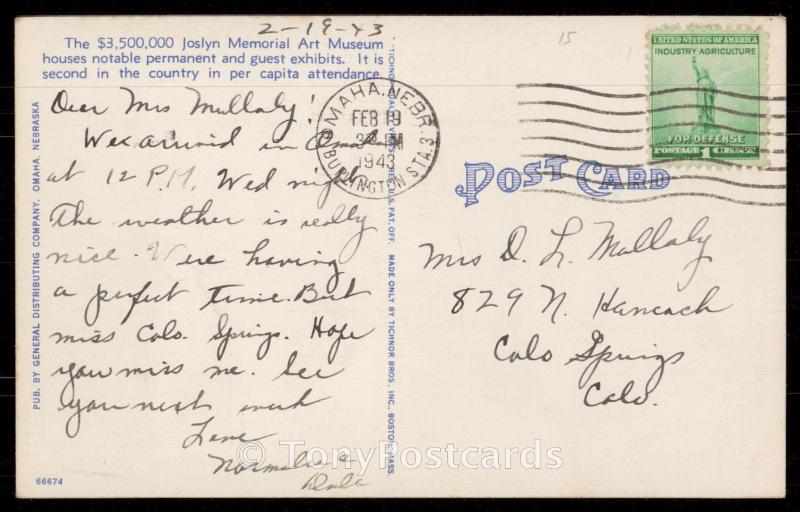 2-19-43
The $3,500,000 Joslyn Memorial Art Museum
houses notable permanent and guest exhibits. It is
second in the country in per capita attendance.
Dear Mrs Mullaly!
We arrived in Oma
at 12 P.M. Wed night
The weather is really
nice. Were having
a perfect time. But
miss Colo. Springs. Hope
you miss me. See
you next week
Love
Dale
66674
PUB. BY GENERAL DISTRIBUTING COMPANY, OMAHA, NEBRASKA
REG. U.S. PAT. OFF. MADE ONLY BY TICHNOR BROS. INC., BOSTON, MASS.
OMAHA, NEBR.
FEB 19
1943
BURLINGTON STA.
15
UNITED STATES OF AMERICA
INDUSTRY-AGRICULTURE
FOR DEFENSE
POSTAGE 1 CENTS
POST CARD
Mrs D. L. Mullaly
829 N. Hancock
Colo Springs
Colo.
© TonyPostcards